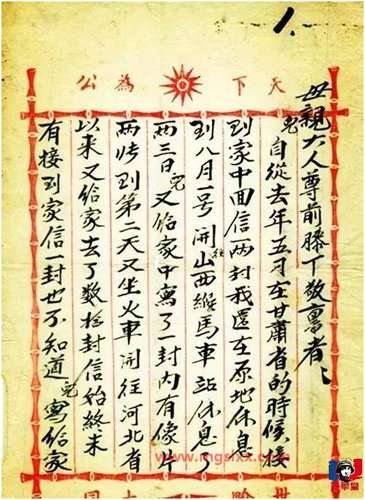 1.
天下為公
母親大人尊前膝下敬禀者：
兒自從去年五月在甘肅省的時候接
到家中回信两封我還在原地休息
到八月一号開往山西緱馬車站休息了
两三日兒又給家中寫了一封内有像片
两张到第二天又坐火車開往河北省
以來又給家去了數拾封信始終未
有接到家信一封也不知道兒寫給家
世界大同